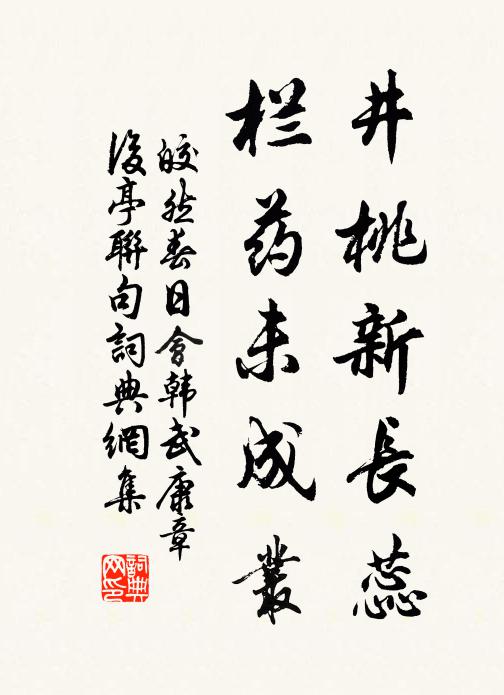 井桃新長蕊
栏药未成叢
皎然春日會韩武康章
後亭聯句詞典網集
詞典网印